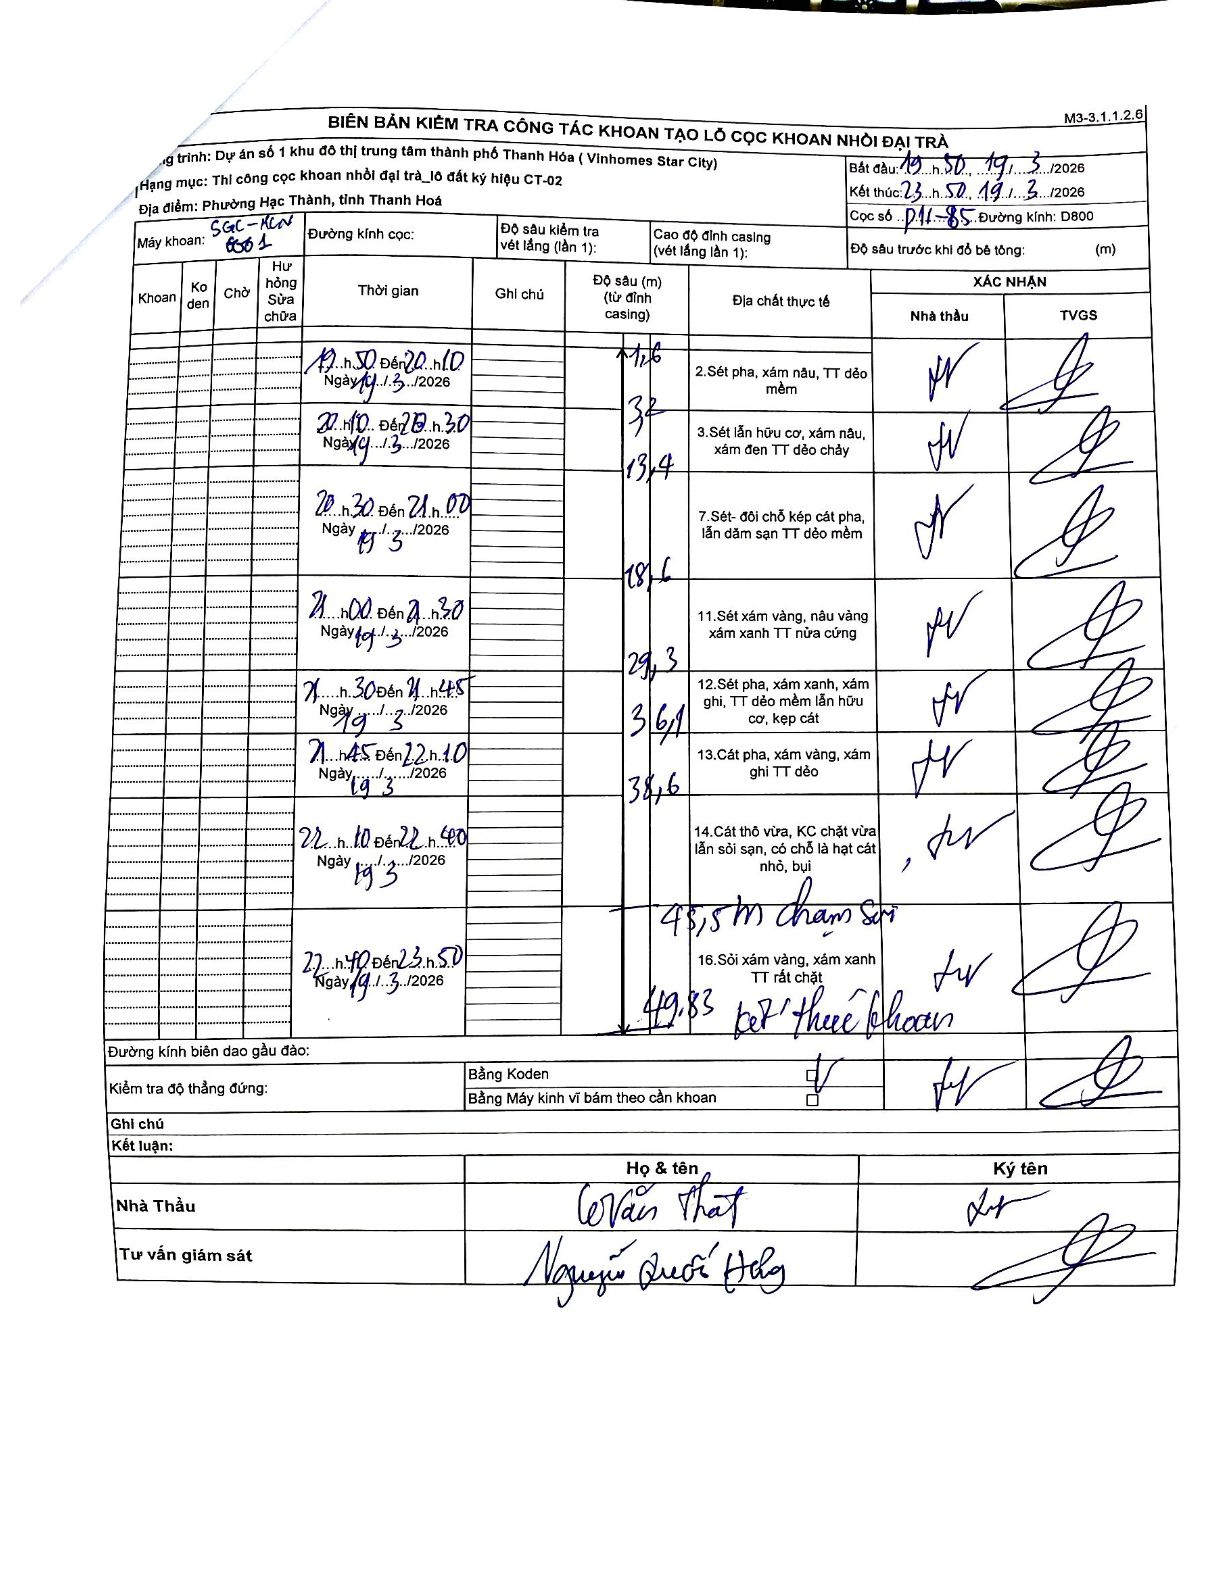 M3-3.1.1.2.6
BIÊN BẢN KIỂM TRA CÔNG TÁC KHOAN TẠO LỖ CỌC KHOAN NHỒI ĐẠI TRÀ
g trình: Dự án số 1 khu đô thị trung tâm thành phố Thanh Hóa ( Vinhomes Star City)
Hạng mục: Thi công cọc khoan nhồi đại trà_lô đất ký hiệu CT-02
Địa điểm: Phường Hạc Thành, tỉnh Thanh Hoá
Bắt đầu: 19 h 50, 19/ 3 /2026
Kết thúc: 23 h 50, 19/ 3 /2026
Cọc số P11-85 Đường kính: D800
Máy khoan: SGC-KCN
Đường kính cọc:
Độ sâu kiểm tra vét lắng (lần 1):
Cao độ đỉnh casing (vét lắng lần 1):
Độ sâu trước khi đổ bê tông: (m)
Khoan
Ko đen
Chờ
Hư hỏng Sửa chữa
Thời gian
Ghi chú
Độ sâu (m) (từ đỉnh casing)
Địa chất thực tế
XÁC NHẬN
Nhà thầu
TVGS
19 h 50 Đến 20 h 10
Ngày 19/ 3 /2026
1,6
2.Sét pha, xám nâu, TT dẻo mềm
3,2
20 h 10 Đến 20 h 30
Ngày 19/ 3 /2026
3.Sét lẫn hữu cơ, xám nâu, xám đen TT dẻo chảy
13,4
20 h 30 Đến 21 h 00
Ngày 19/ 3 /2026
7.Sét- đôi chỗ kẹp cát pha, lẫn dăm sạn TT dẻo mềm
18,6
21 h 00 Đến 21 h 30
Ngày 19/ 3 /2026
11.Sét xám vàng, nâu vàng xám xanh TT nửa cứng
29,3
21 h 30 Đến 21 h 45
Ngày 19/ 3 /2026
12.Sét pha, xám xanh, xám ghi, TT dẻo mềm lẫn hữu cơ, kẹp cát
36,1
21 h 45 Đến 22 h 10
Ngày 19/ 3 /2026
13.Cát pha, xám vàng, xám ghi TT dẻo
38,6
22 h 10 Đến 22 h 40
Ngày 19/ 3 /2026
14.Cát thô vừa, KC chặt vừa lẫn sỏi sạn, có chỗ là hạt cát nhỏ, bụi
45,5m chạm sỏi
22 h 40 Đến 23 h 50
Ngày 19/ 3 /2026
16.Sỏi xám vàng, xám xanh TT rất chặt
49,83 kết thúc khoan
Đường kính biên dao gầu đào:
Kiểm tra độ thẳng đứng:
Bằng Koden
Bằng Máy kinh vĩ bám theo cần khoan
Ghi chú
Kết luận:
Họ & tên
Ký tên
Nhà Thầu
Lê Văn Thật
Tư vấn giám sát
Nguyễn Quốc